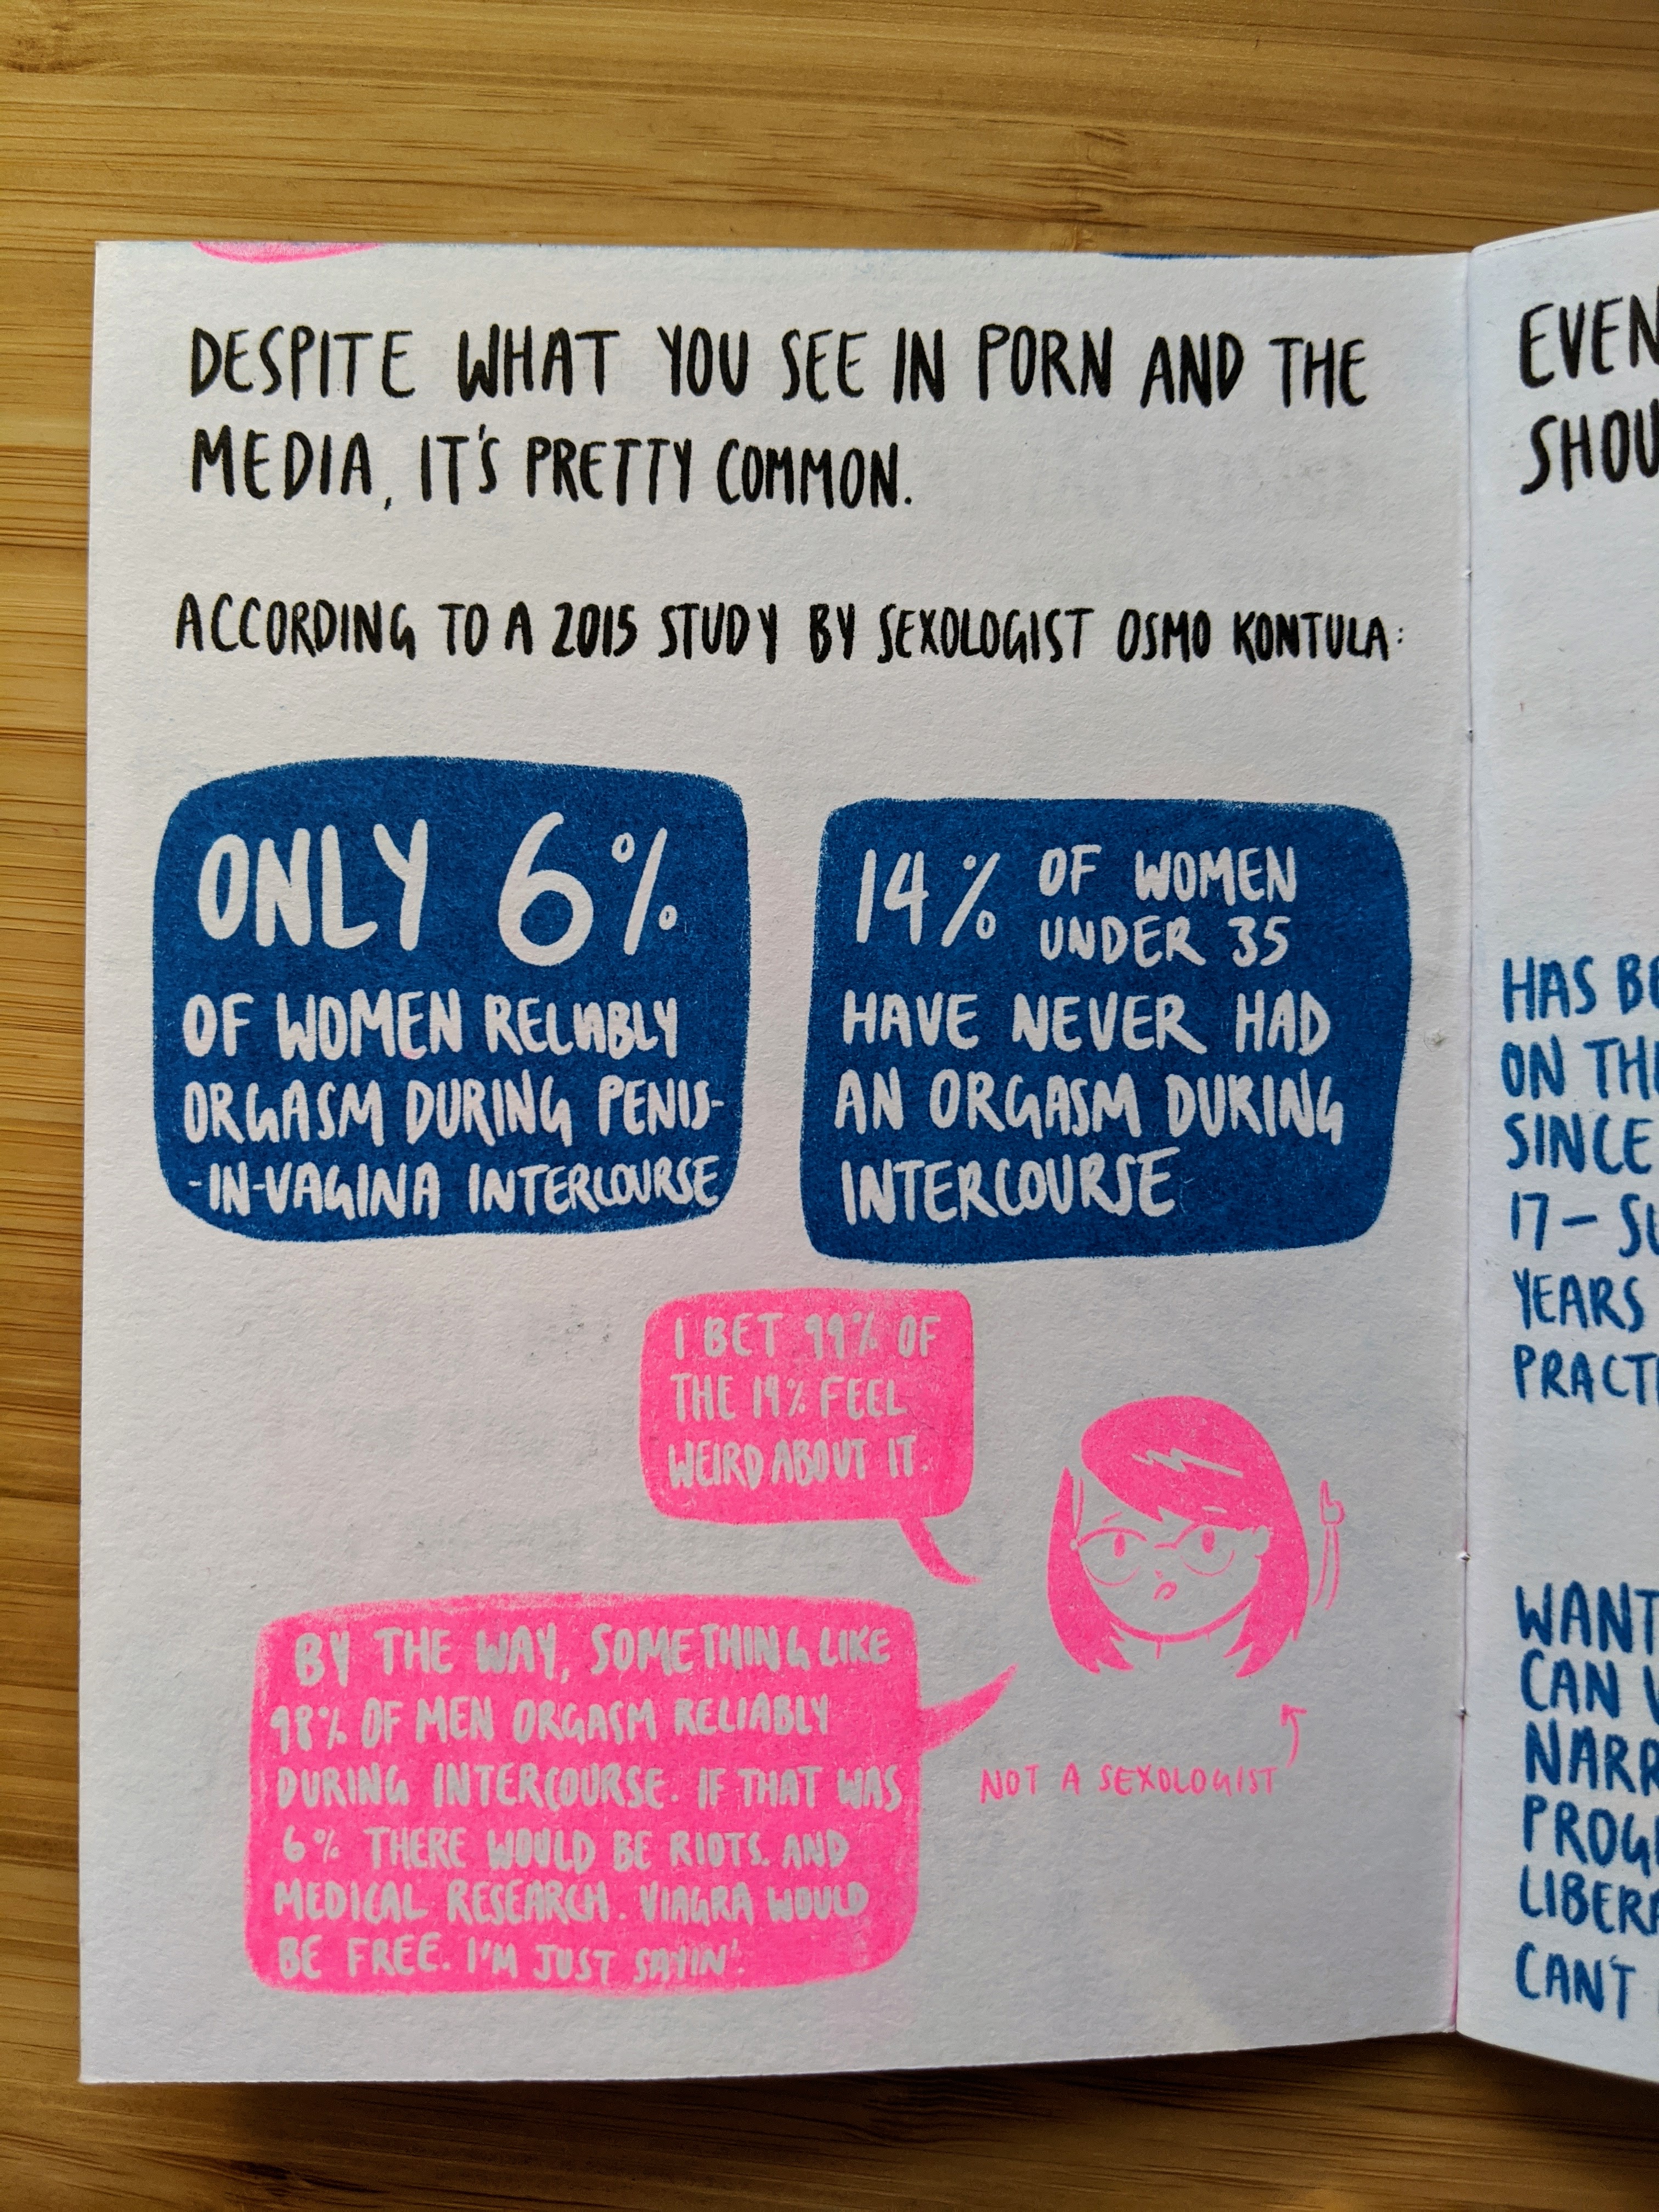 DESPITE WHAT YOU SEE IN PORN AND THE
MEDIA, IT'S PRETTY COMMON.
ACCORDING TO A 2015 STUDY BY SEXOLOGIST OSMO KONTULA:
ONLY 6%
OF WOMEN RELIABLY
ORGASM DURING PENIS-
-IN-VAGINA INTERCOURSE
14% OF WOMEN
UNDER 35
HAVE NEVER HAD
AN ORGASM DURING
INTERCOURSE
I BET 99% OF
THE 14% FEEL
WEIRD ABOUT IT.
BY THE WAY, SOMETHING LIKE
98% OF MEN ORGASM RELIABLY
DURING INTERCOURSE. IF THAT WAS
6% THERE WOULD BE RIOTS. AND
MEDICAL RESEARCH. VIAGRA WOULD
BE FREE. I'M JUST SAYIN'.
NOT A SEXOLOGIST
EVEN
SHOU
HAS BE
ON THE
SINCE
17 – SU
YEARS
PRACTI
WANT
CAN
NARR
PROG
LIBERA
CAN'T